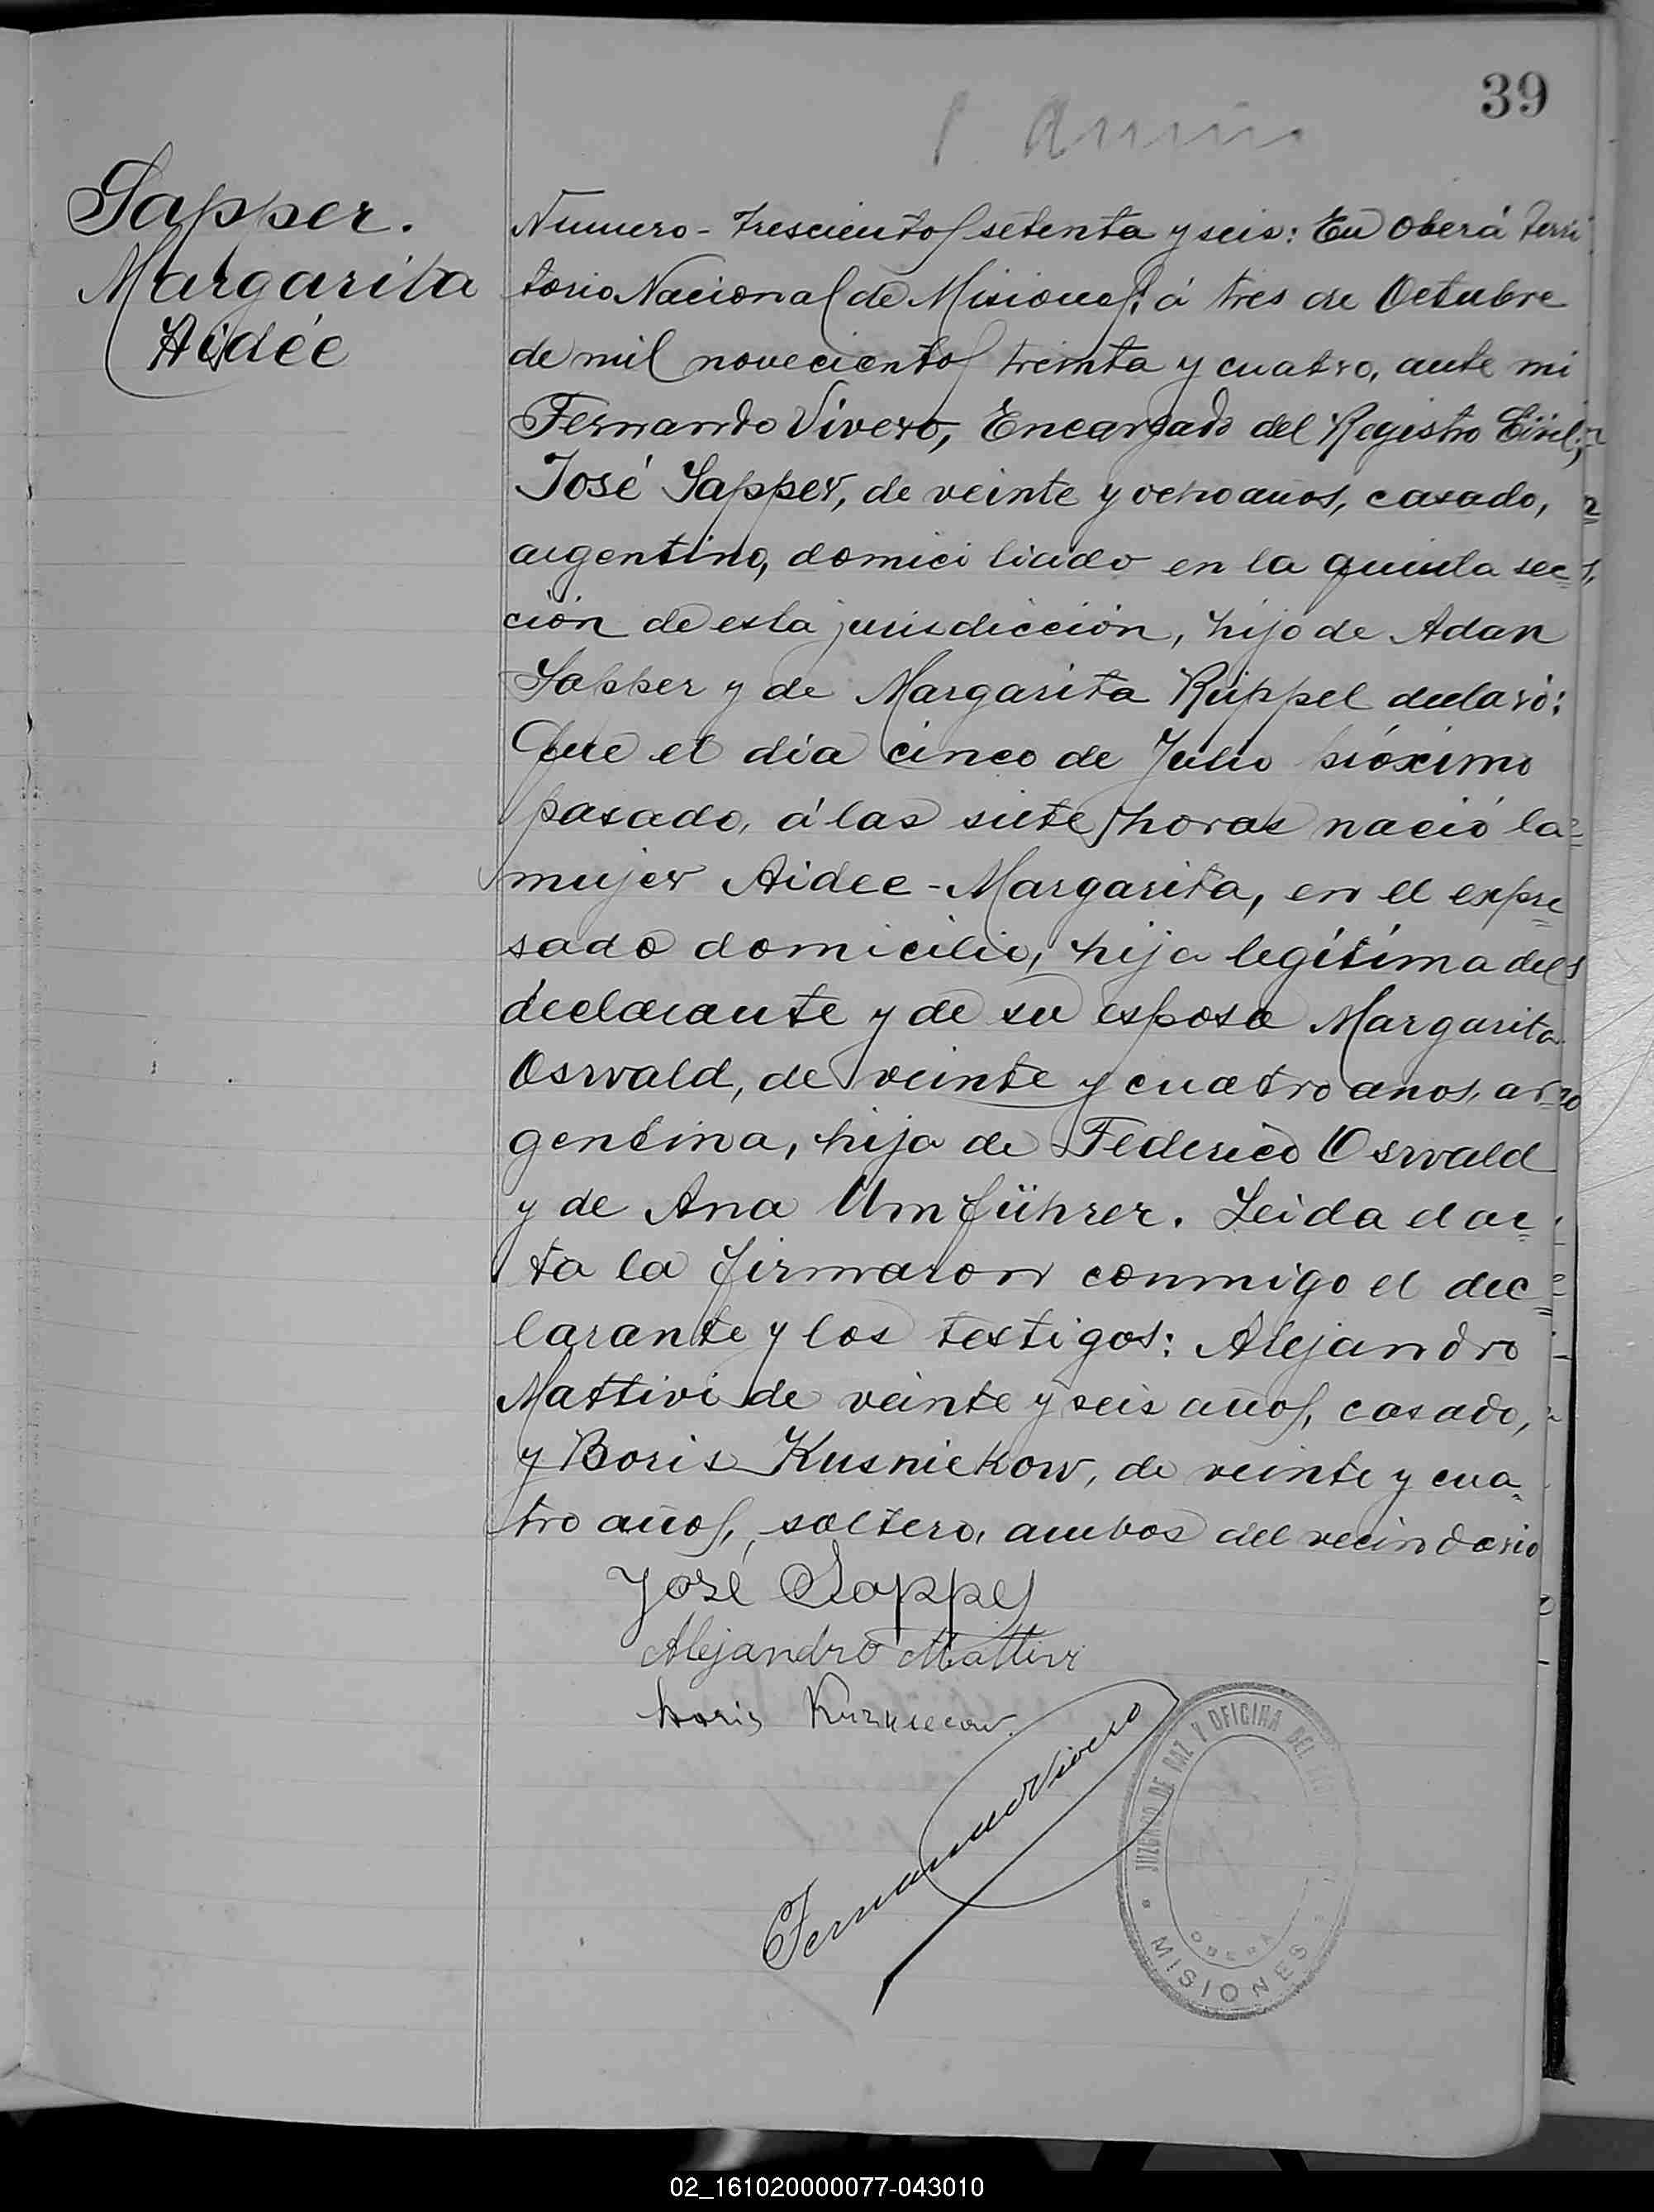 39
Sapper.
Margarita
Aidée
Numero - trescientos setenta y seis: En Oberá Terri
torio Nacional de Misiones; á tres de Octubre
de mil novecientos treinta y cuatro, ante mi
Fernando Vivero, Encargado del Registro Civil,
José Sapper, de veinte y ocho años, casado,
argentino, domiciliado en la quinta sec=
ción de esta jurisdicción, hijo de Adan
Sapper y de Margarita Rüppel declaró:
Que el día cinco de Julio próximo
pasado, á las siete horas nació la
mujer Aidee-Margarita, en el expre=
sado domicilio, hija legítima del
declarante y de su esposa Margarita
Oswald, de veinte y cuatro anos, ar=
gentina, hija de Federico Oswald
y de Ana Umführer. Leida el ac=
ta la firmaron conmigo el dec=
larante y los testigos: Alejandro
Mattivi de veinte y seis años, casado,
y Boris Kusniekow, de veinte y cua=
tro años, soltero, ambos del vecindario
José Sapper
Alejandro Mattivi
Boris
Fernando Vivero
JUZGADO DE PAZ Y OFICINA DEL
OBERÁ
MISIONES
02_161020000077-043010